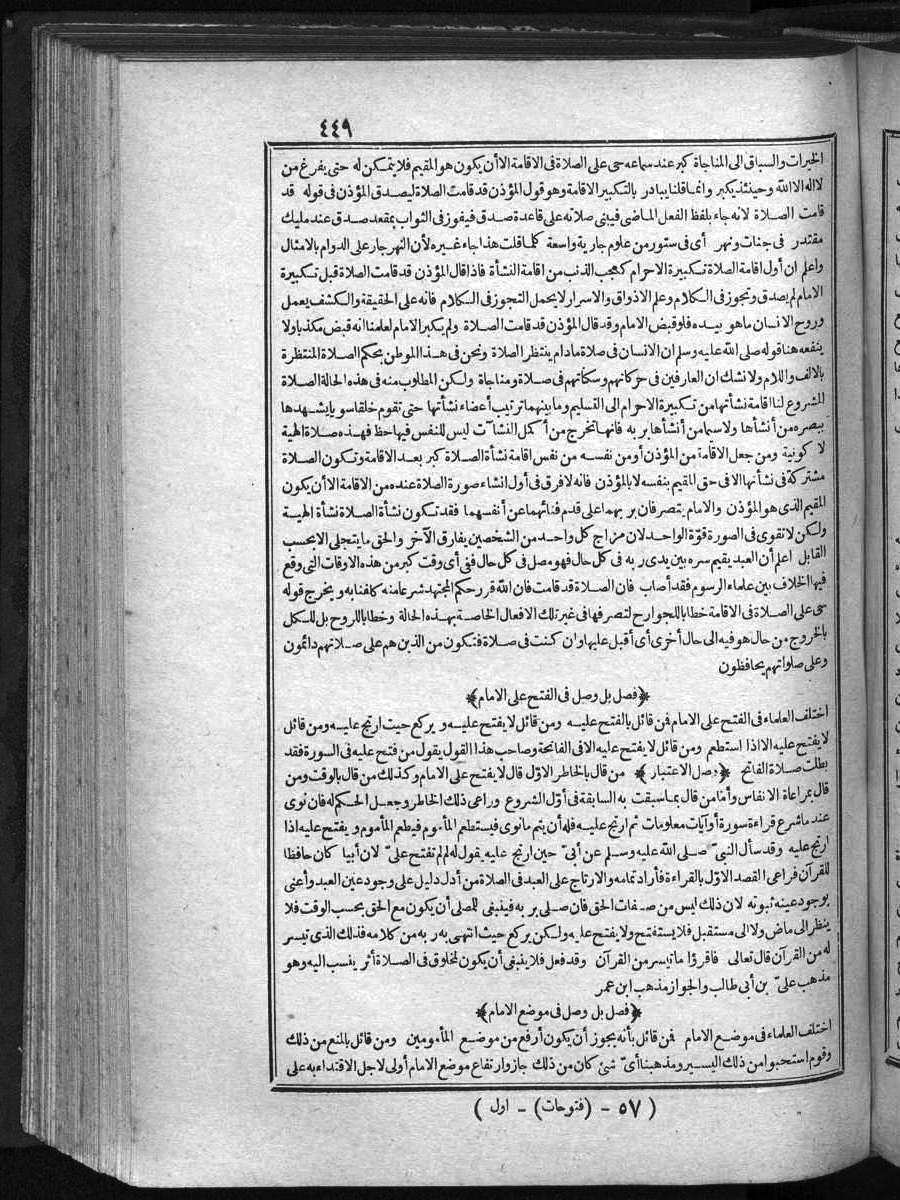 ٤٤٩
الخيرات والسباق الى المناجاة كبر عند سماعه حى على الصلاة فى الاقامة الا أن يكون هو المقيم فلا يتمكن له حتى يفرغ من
لا اله الا الله وحينئذ يكبر وانما قلنا يبادر بالتكبير الاقامة وهو قول المؤذن قد قامت الصلاة ليصدق المؤذن فى قوله قد
قامت الصلاة لانه جاء بلفظ الفعل الماضى فيبنى صلاته على قاعدة صدق فيفوز فى الثواب بمقعد صدق عند مليك
مقتدر فى جنات ونهر أى فى ستور من علوم جارية واسعة كلما قلت هذا جاء غيره لأن النهر جار على الدوام بالامثال
واعلم ان أول اقامة الصلاة تكبيرة الاحرام كعجب الذنب من اقامة النشأة فاذا قال المؤذن قد قامت الصلاة قبل تكبيرة
الامام لم يصدق وتجوز فى الكلام وعلم الاذواق والاسرار لا يحمل التجوز فى الكلام فانه على الحقيقة والكشف يعمل
وروح الانسان ما هو بيده فلو قبض الامام وقد قال المؤذن قد قامت الصلاة ولم يكبر الامام لعلمنا انه قبض مكذبا ولا
ينفعه هنا قوله صلى الله عليه وسلم ان الانسان فى صلاة ما دام ينتظر الصلاة ونحن فى هذا الموطن بحكم الصلاة المنتظرة
بالالف واللام ولا نشك ان العارفين فى حركاتهم وسكناتهم فى صلاة ومناجاة ولكن المطلوب منه فى هذه الحالة الصلاة
المشروع لنا اقامة نشأتها من تكبيرة الاحرام الى التسليم وما بينهما ترتيب أعضاء نشأتها حتى تقوم خلقا سويا يشهدها
ببصره من أنشأها ولا سيما من أنشأها بربه فانها تخرج من أكمل النشآت ليس للنفس فيها حظ فهذه صلاة الهية
لا كونية ومن جعل الاقامة من المؤذن أو من نفسه من نفس اقامة نشأة الصلاة كبر بعد الاقامة وتكون الصلاة
مشتركة فى نشأتها الا فى حق المقيم بنفسه لا بالمؤذن فانه لا فرق فى أول انشاء صورة الصلاة عنده من الاقامة الا أن يكون
المقيم الذى هو المؤذن والامام يتصرفان بربهما على قدم فنائهما عن أنفسهما فقد تكون نشأة الصلاة نشأة الهية
ولكن لا تقوى فى الصورة قوّة الواحد لان مزاج كل واحد من الشخصين يفارق الآخر والحق ما يتجلى الا بحسب
القابل اعلم أن العبد يقيم سره بين يدى ربه فى كل حال فهو مصل فى كل حال فنى أى وقت كبر من هذه الاوقات التى وقع
فيها الخلاف بين علماء الرسوم فقد أصاب فان الصلاة قد قامت فان الله قرر حكم المجتهد شرعا منه كلفنا به ويخرج قوله
حى على الصلاة فى الاقامة خطابا للجوارح لتصرفها فى غير تلك الافعال الخاصة بهذه الحالة وخطابا للروح بل للكل
بالخروج من حال هو فيه الى حال أخرى أى أقبل عليها وان كنت فى صلاة فتكون من الذين هم على صلاتهم دائمون
وعلى صلواتهم يحافظون
﴿فصل بل وصل فى الفتح على الامام﴾
اختلف العلماء فى الفتح على الامام فمن قائل بالفتح عليه ومن قائل لا يفتح عليه ويركع حيث ارتج عليه ومن قائل
لا يفتح عليه الا اذا استطعم ومن قائل لا يفتح عليه الا فى الفاتحة وصاحب هذا القول يقول من فتح عليه فى السورة فقد
بطلت صلاة الفاتح ﴿وصل الاعتبار﴾ من قال بالخاطر الاوّل قال لا يفتح على الامام وكذلك من قال بالوقت ومن
قال بمراعاة الانفاس وأما من قال بما سبقت به السابقة فى أوّل الشروع وراعى ذلك الخاطر وجعل الحكم له فان نوى
عند ما شرع قراءة سورة أو آيات معلومات ثم ارتج عليه فله أن يتم ما نوى فيستطعم المأموم فيطعم المأموم ويفتح عليه اذا
ارتج عليه وقد سأل النبىّ صلى الله عليه وسلم عن أبىّ حين ارتج عليه يقول له لم لم تفتح علىّ لان أبيا كان حافظا
للقرآن فراعى القصد الاوّل بالقراءة فأراد تمامه والارتاج على العبد فى الصلاة من أدل دليل على وجود عين العبد وأعنى
بوجود عينه ثبوته لان ذلك ليس من صفات الحق فان صلى بربه فينبغى للمصلى أن يكون مع الحق بحسب الوقت فلا
ينظر الى ماض ولا الى مستقبل فلا يستفتح ولا يفتح عليه ولكن يركع حيث انتهى به ربه من كلامه فذلك الذى تيسر
له من القرآن قال تعالى فاقرؤا ما تيسر من القرآن وقد فعل فلا ينبغى أن يكون لمخلوق فى الصلاة أثر ينسب اليه وهو
مذهب علىّ بن أبى طالب والجواز مذهب ابن عمر
﴿فصل بل وصل فى موضع الامام﴾
اختلف العلماء فى موضع الامام فمن قائل بأنه يجوز أن يكون أرفع من موضع المأمومين ومن قائل بالمنع من ذلك
وقوم استحبوا من ذلك اليسير ومذهبنا أىّ شئ كان من ذلك جاز وارتفاع موضع الامام أولى لاجل الاقتداء به على
( ٥٧ - (فتوحات) - اول )